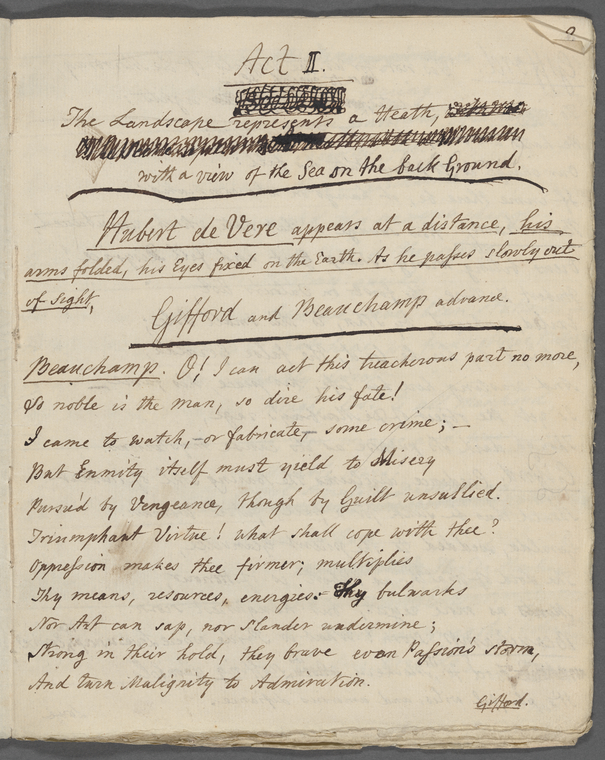 Act II.
The Landscape represents a Heath,
with a view of the Sea on the back Ground.
Hubert de Vere appears at a distance, his
arms folded, his Eyes fixed on the Earth. As he passes slowly out
of sight,
Gifford and Beauchamp advance.
Beauchamp. O! I can act this treacherous part no more,
So noble is the man, so dire his fate!
I came to watch, – or fabricate, – some crime; –
But Enmity itself must yield to Misery
Pursu'd by Vengeance, though by Guilt unsullied.
Triumphant Virtue! what shall cope with thee?
Oppression makes thee firmer; multiplies
Thy means, resources, energies: Thy bulwarks
Nor Art can sap, nor Slander undermine;
Strong in their hold, they brave even Passion's storm,
And turn Malignity to Admiration.
Gifford.